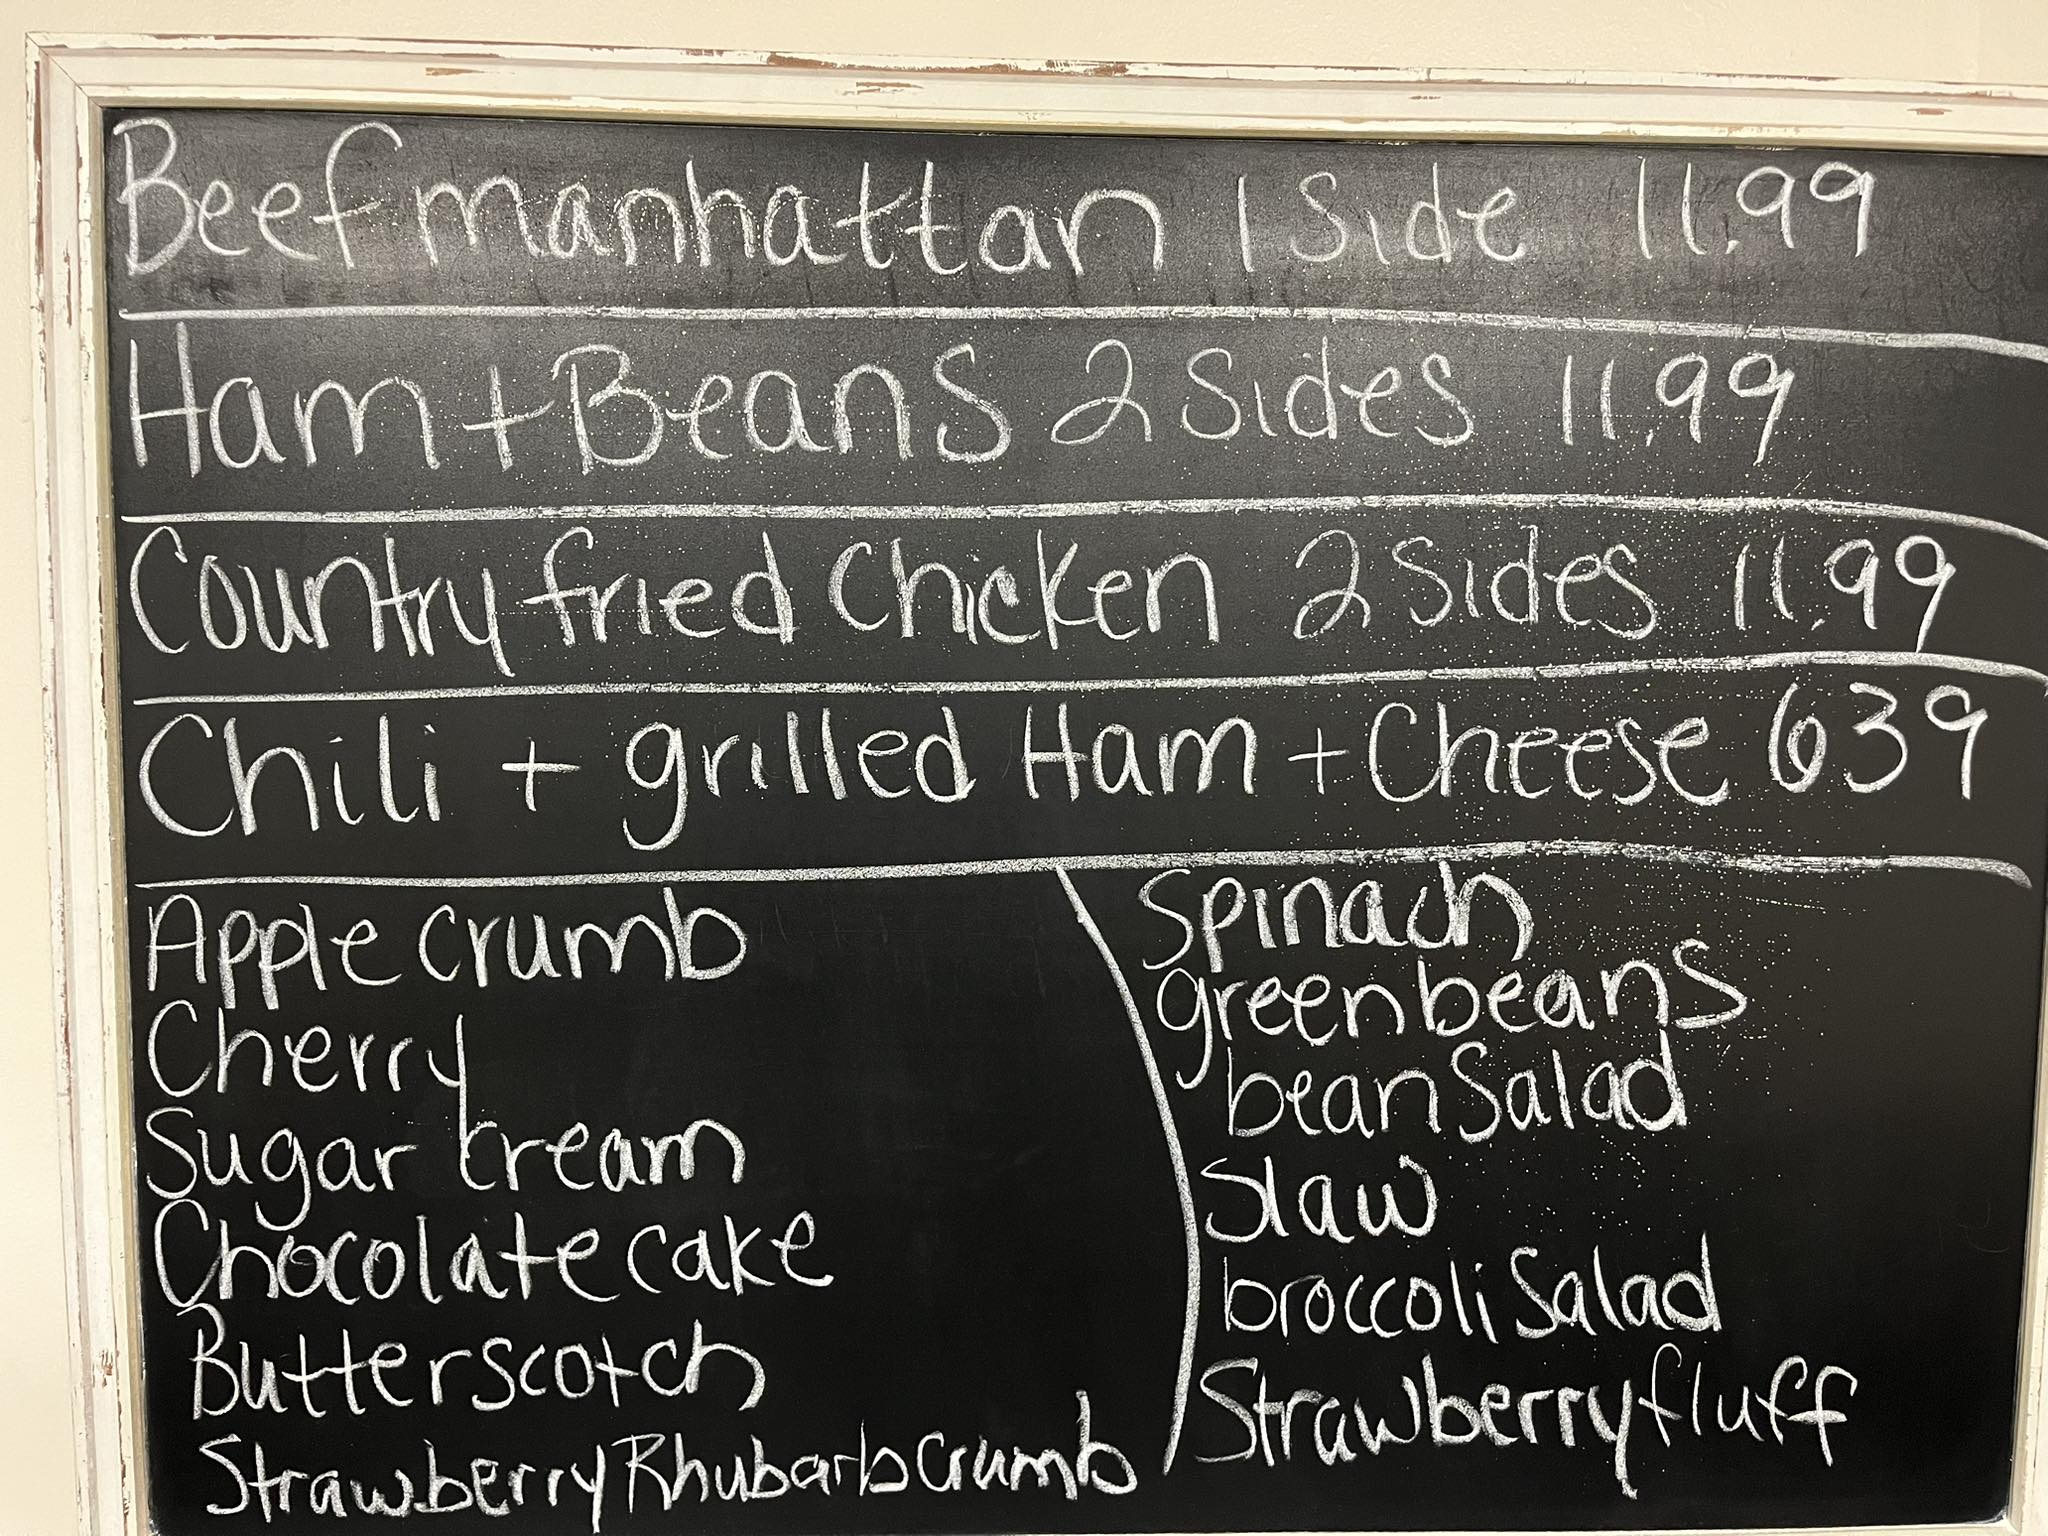 Beef manhattan 1 Side 11.99
Ham + Beans 2 Sides 11.99
Country fried Chicken 2 Sides 11.99
Chili + grilled Ham + Cheese 639
Apple Crumb
Cherry
Sugar Cream
Chocolate cake
Butterscotch
Strawberry Rhubarb Crumb
Spinach
green beans
bean Salad
Slaw
broccoli Salad
Strawberry fluff